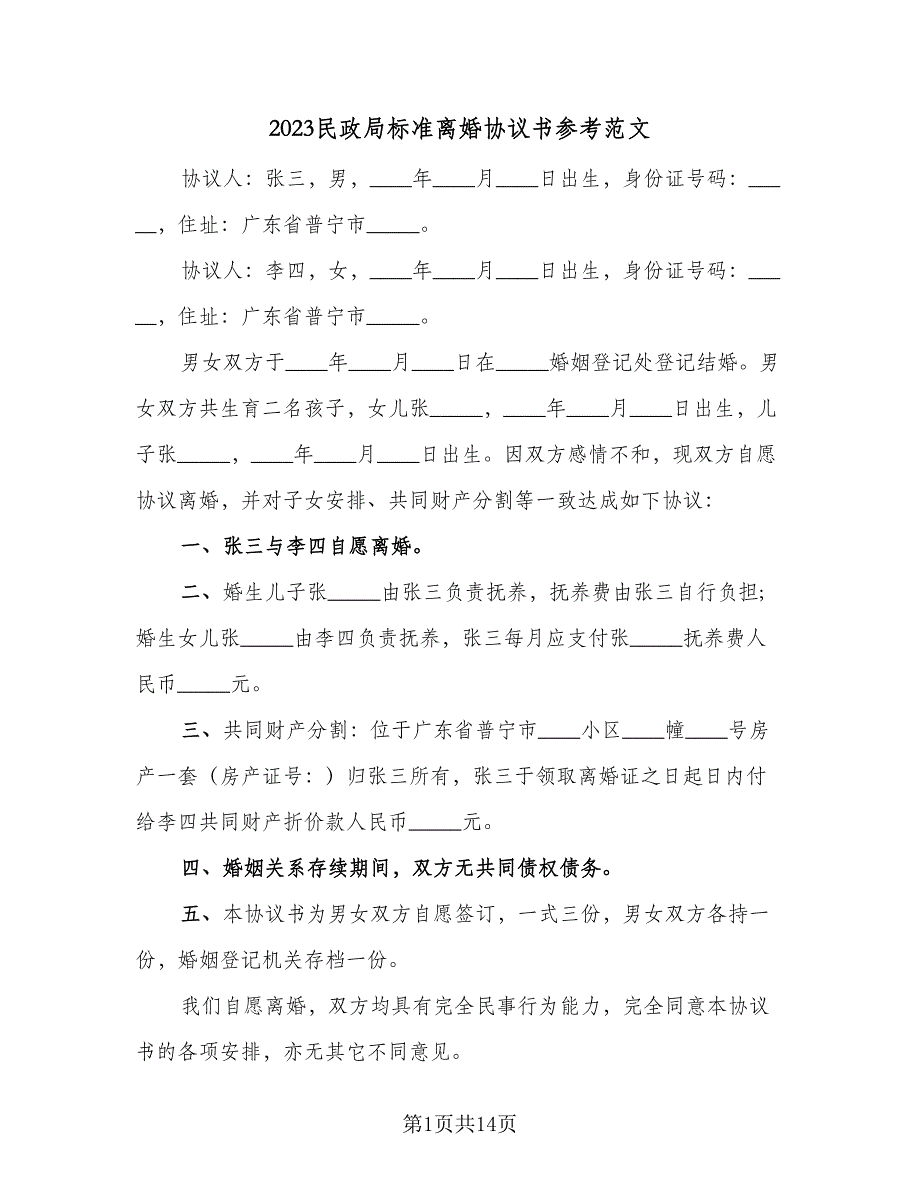 2023民政局标准离婚协议书参考范文
协议人：张三，男，____年____月____日出生，身份证号码：___
__，住址：广东省普宁市_____。
协议人：李四，女，____年____月____日出生，身份证号码：___
__，住址：广东省普宁市_____。
男女双方于____年____月____日在_____婚姻登记处登记结婚。男
女双方共生育二名孩子，女儿张_____，____年____月____日出生，儿
子张_____，____年____月____日出生。因双方感情不和，现双方自愿
协议离婚，并对子女安排、共同财产分割等一致达成如下协议：
一、张三与李四自愿离婚。
二、婚生儿子张_____由张三负责抚养，抚养费由张三自行负担;
婚生女儿张_____由李四负责抚养，张三每月应支付张_____抚养费人
民币_____元。
三、共同财产分割：位于广东省普宁市____小区____幢____号房
产一套（房产证号：）归张三所有，张三于领取离婚证之日起日内付
给李四共同财产折价款人民币_____元。
四、婚姻关系存续期间，双方无共同债权债务。
五、本协议书为男女双方自愿签订，一式三份，男女双方各持一
份，婚姻登记机关存档一份。
我们自愿离婚，双方均具有完全民事行为能力，完全同意本协议
书的各项安排，亦无其它不同意见。
第1页共14页